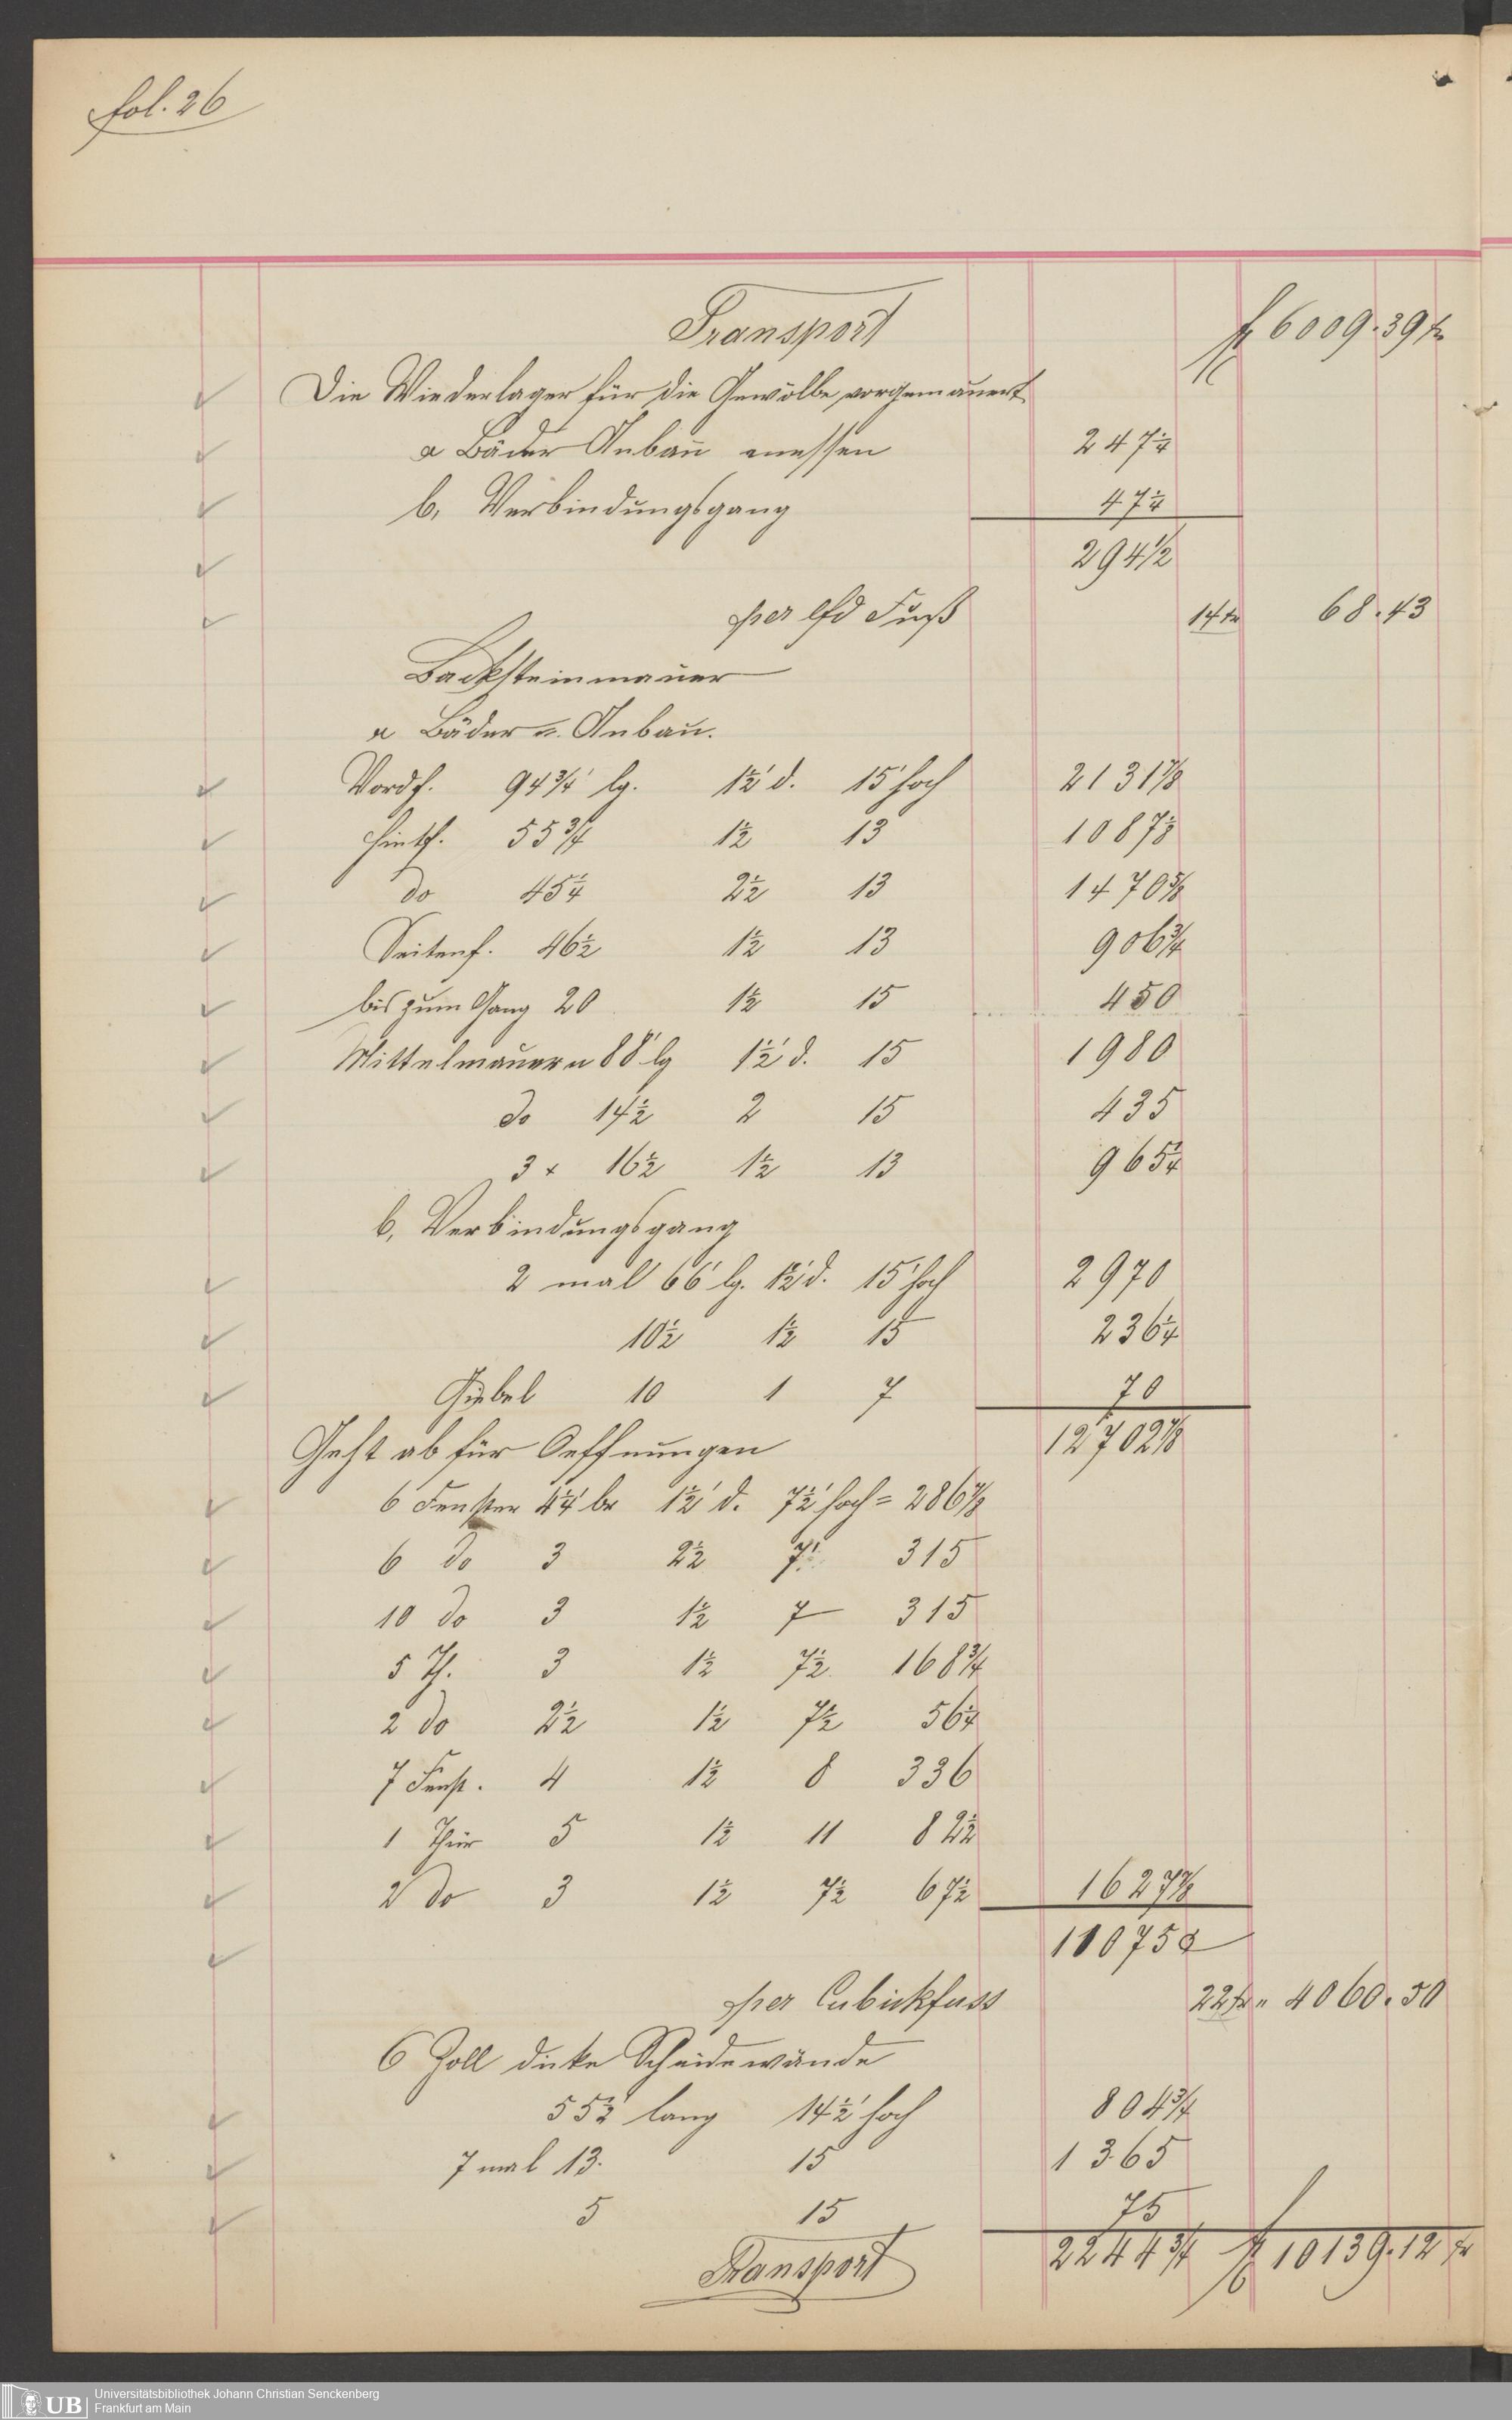 fol. 26
Transport f 6009.39 kr
Die Wiederlager für die Gewölbe vorgemauert
a Bäder Anbau messen 247¼
b, Verbindungsgang 47¼
294½
per lfd Fuß 14 kr 68.43
Backsteinmauer
a Bäder-Anbau.
Vordf. 94¾' lg. 1½' d. 15' hoch 2131⅞
Hintf. 55¾ 1½ 13 1087⅛
do 45¼ 2½ 13 1470⅝
Seitenf. 46½ 1½ 13 906¾
bis zum Gang 20 1½ 15 450
Mittelmauern 88' lg 1½' d. 15 1980
do 14½ 2 15 435
3 x 16½ 1½ 13 965¼
b, Verbindungsgang
2 mal 66' lg. 1½' d. 15' hoch 2970
10½ 1½ 15 236¼
Giebel 10 1 7 70
Geht ab für Oeffnungen 12702⅞
6 Fenster 4¼' br 1½' d. 7½' hoch = 286⅞
6 do 3 2½ 7' 315
10 do 3 1½ 7 315
5 Th. 3 1½ 7½ 168¾
2 do 2½ 1½ 7½ 56¼
7 Fenst. 4 1½ 8 336
1 Thür 5 1½ 11 82½
2 do 3 1½ 7½ 67½ 1627⅞
11075
per Cubickfuss 22 kr " 4060.50
6 Zoll dicke Scheidewände
55½ lang 14½' hoch 804¾
7 mal 13. 15 1365
5 15 75
Transport 2244¾ f 10139.12 kr
UB
Universitätsbibliothek Johann Christian Senckenberg
Frankfurt am Main